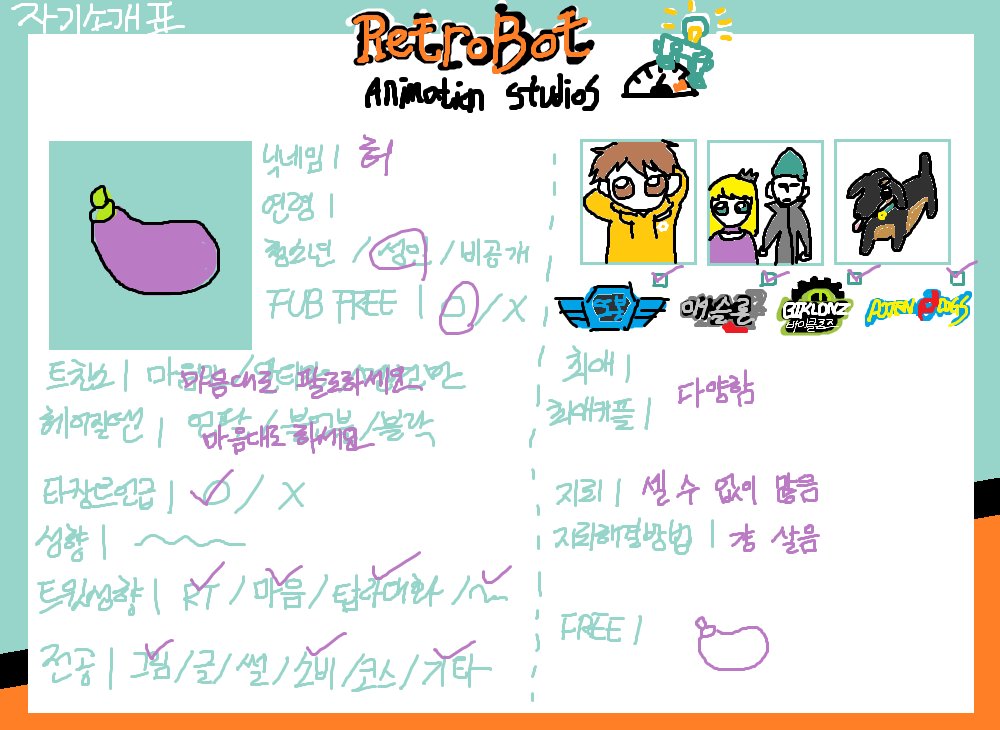 자기소개표
RetroBot
Animation Studios
닉네임 | 허
연령 |
청소년 / 성인 / 비공개
FUB FREE | O / X
트친소 | 마음대로 팔로하세요
헤이질 | 마음대로 하세요 / 블락
타장르언급 | O / X
성향 |
트윗성향 | RT / 마음 / 탐라대화 /
전공 | 그림 / 글 / 썰 / 소비 / 코스 / 기타
또봇
애슬론
BIKLONZ
바이클론즈
최애 |
최애커플 | 다양함
지뢰 | 셀 수 없이 많음
지뢰해결방법 | 걍 살음
FREE |